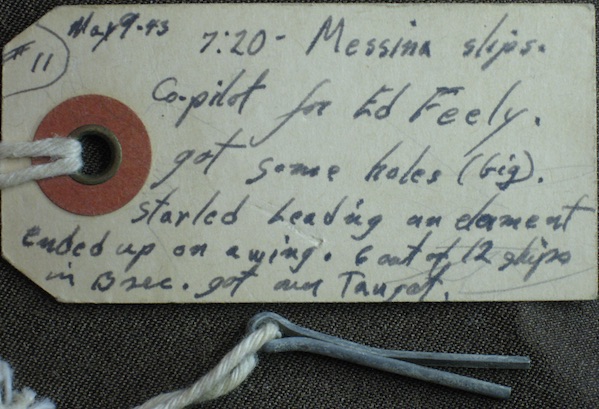 #11
May 9-43 7:20- Messina slips.
Co-pilot for Ed Feely.
got some holes (big).
started leading an element
ended up on a wing. 6 out of 12 ships
in B sec. got over Target.